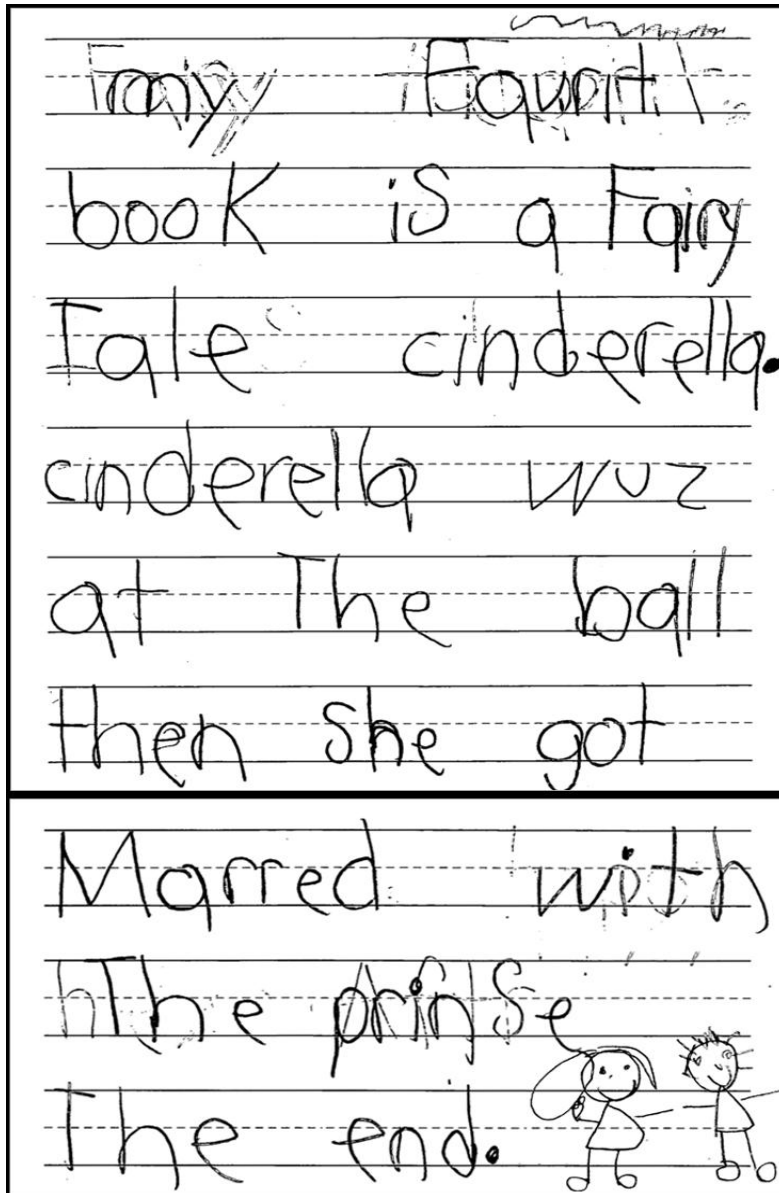 my
book is a Fairy
Tale cinderella.
cinderella wuz
at The ball
then She got
Marred with
The prinSe
The end.